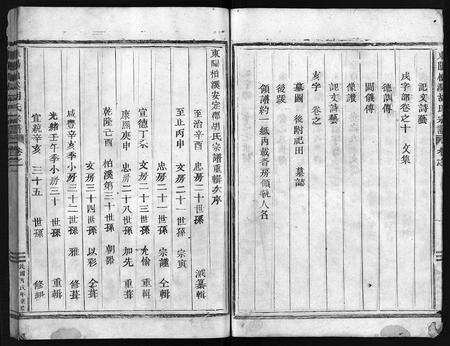 記文詩藝
戌字號卷之十 文集
德訓傳
閫儀傳
像讚
記文詩藝
亥字 卷之
墓圖 後附祀田 墓誌
後跋
領譜約二紙內載各房領執人名
東陽柏溪安定郡胡氏宗譜重輯次序
至治辛酉 忠房二十世孫 纂輯
至正丙申 文房二十一世孫 宗寅
忠房二十一世孫 宗謹 仝輯
宣德丁未 文房二十三世孫 允倫 重輯
康熙庚申 忠房二十八世孫 加先 重輯
乾隆己酉 柏溪第三十世孫 朝器
文房三十四世孫 以彩 仝葺
咸豐辛亥季小房三十二世孫 雅 修葺
光緒壬午季小房三十 世孫 重輯
宣統辛亥 三十五 世孫 修輯